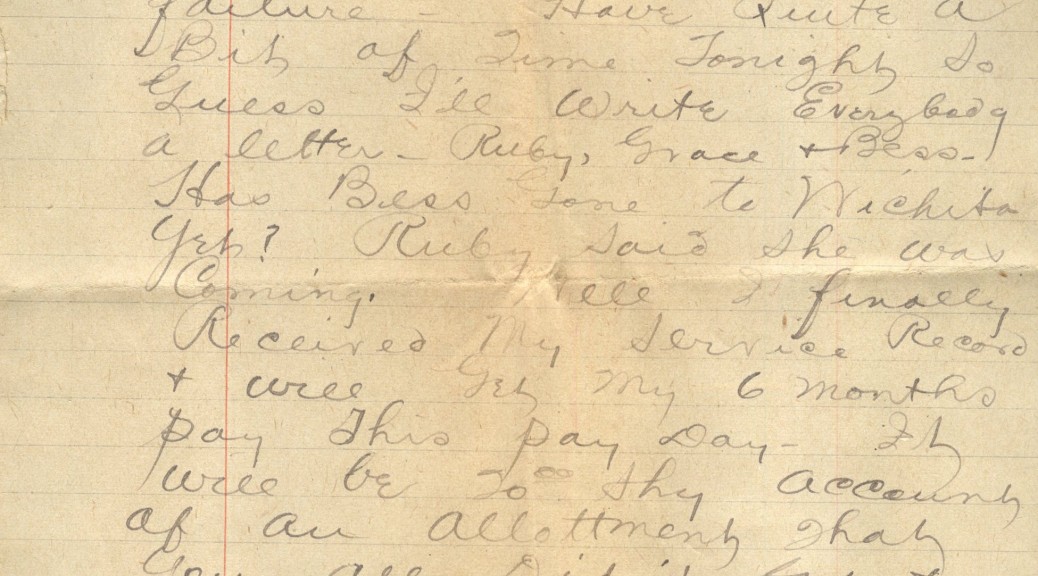 failure - Have Quite a
Bit of Time Tonight So
Guess I'll Write Everybody
a letter - Ruby, Grace + Bess -
Has Bess Gone to Wichita
Yet? Ruby Said She was
Coming. Well I finally
Received My Service Record
+ will Get My 6 months
pay This pay Day - It
will be To Thy Account
of an Allottment That
You all Didn't